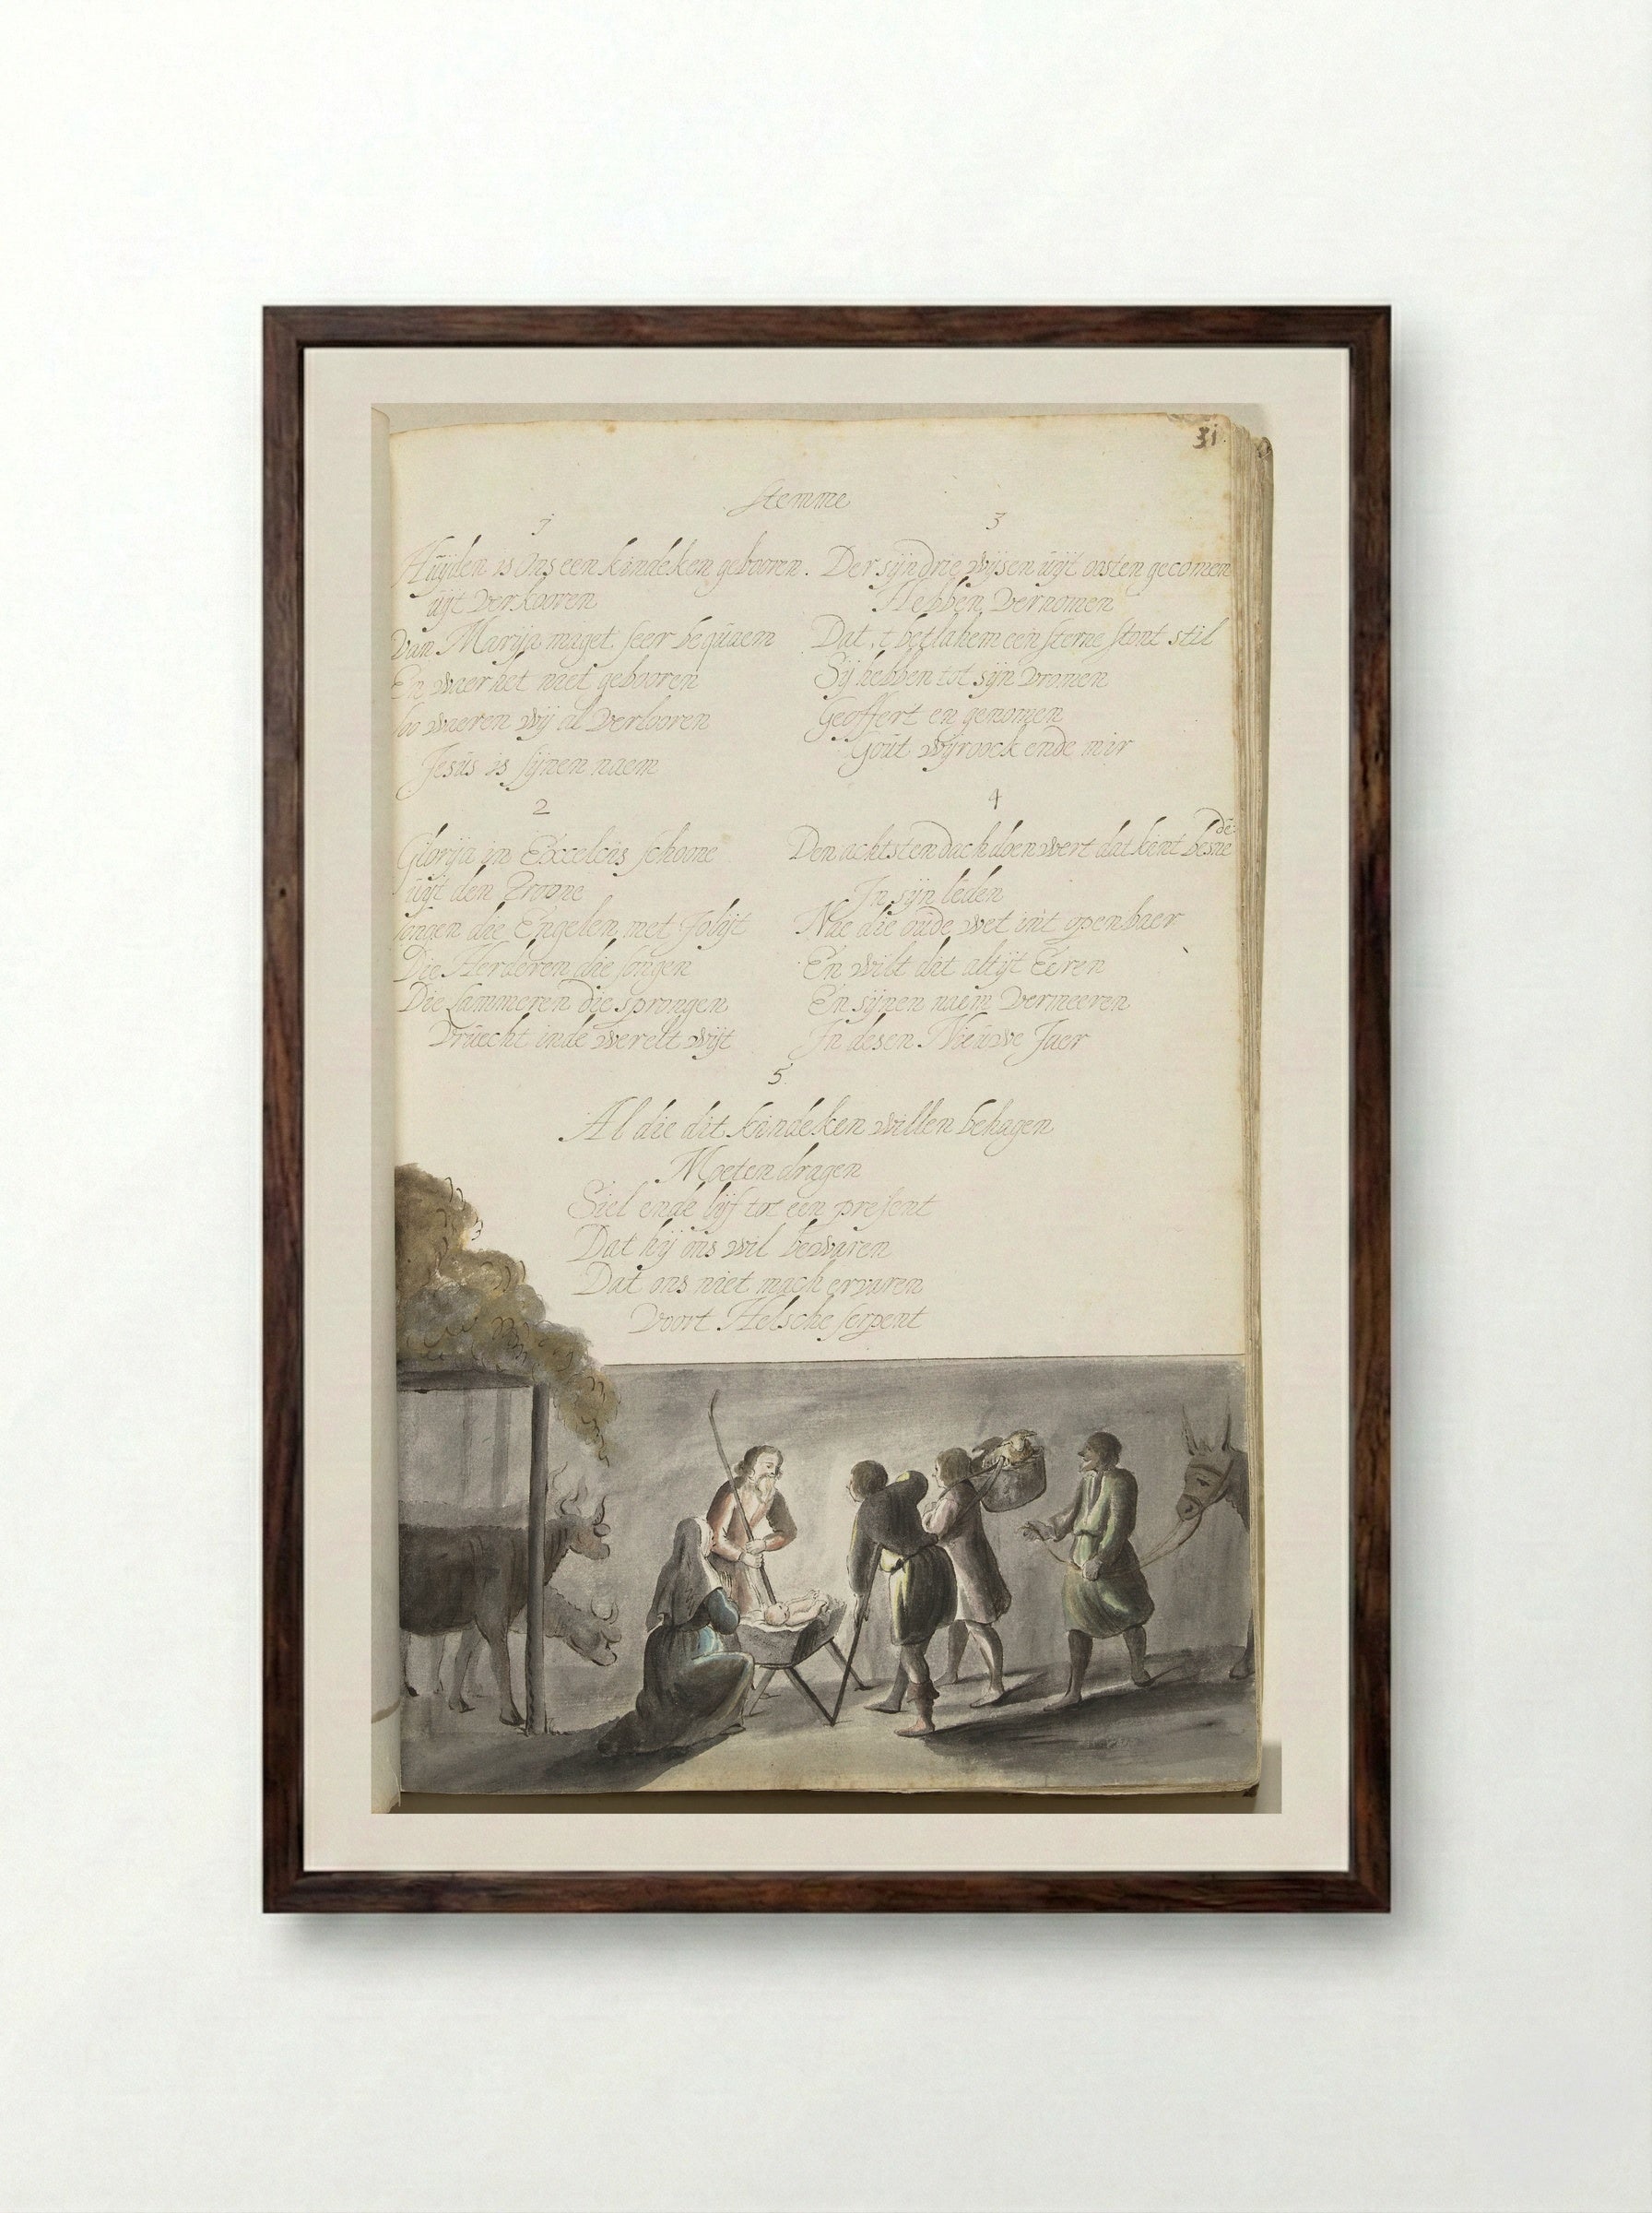 31
Stemme
1
Huijden is ons een kindeken gebooren.
uijt verkooren
van Marija maget seer bequaem
En waer het niet gebooren
soo waeren wij al verlooren
Jesus is sijnen naem
2
Glorija in Excelcis schoone
uijt den Troone
songen die Engelen met Jolijt
Die Herderen die songen
Die Lammeren die sprongen
Vruecht inde werelt wijt
3
Der sijn drie wijsen uijt oosten gecomen
Hebben vernomen
Dat t betlahem een sterne stont stil
Sij hebben tot sijn vromen
Geoffert en genomen
Gout wijroock ende mir
4
Den achtsten dach doen wert dat kint besne
de
In sijn leden
Nae die oude wet int openbaer
En wilt dit altijt Eeren
En sijnen naem vermeeren
In desen Nieuwe Jaer
5
Al die dit kindeken willen behagen
Moeten dragen
Siel ende lijf tot een present
Dat hij ons wil bewaren
Dat ons niet mach ervaren
Voort Helsche serpent